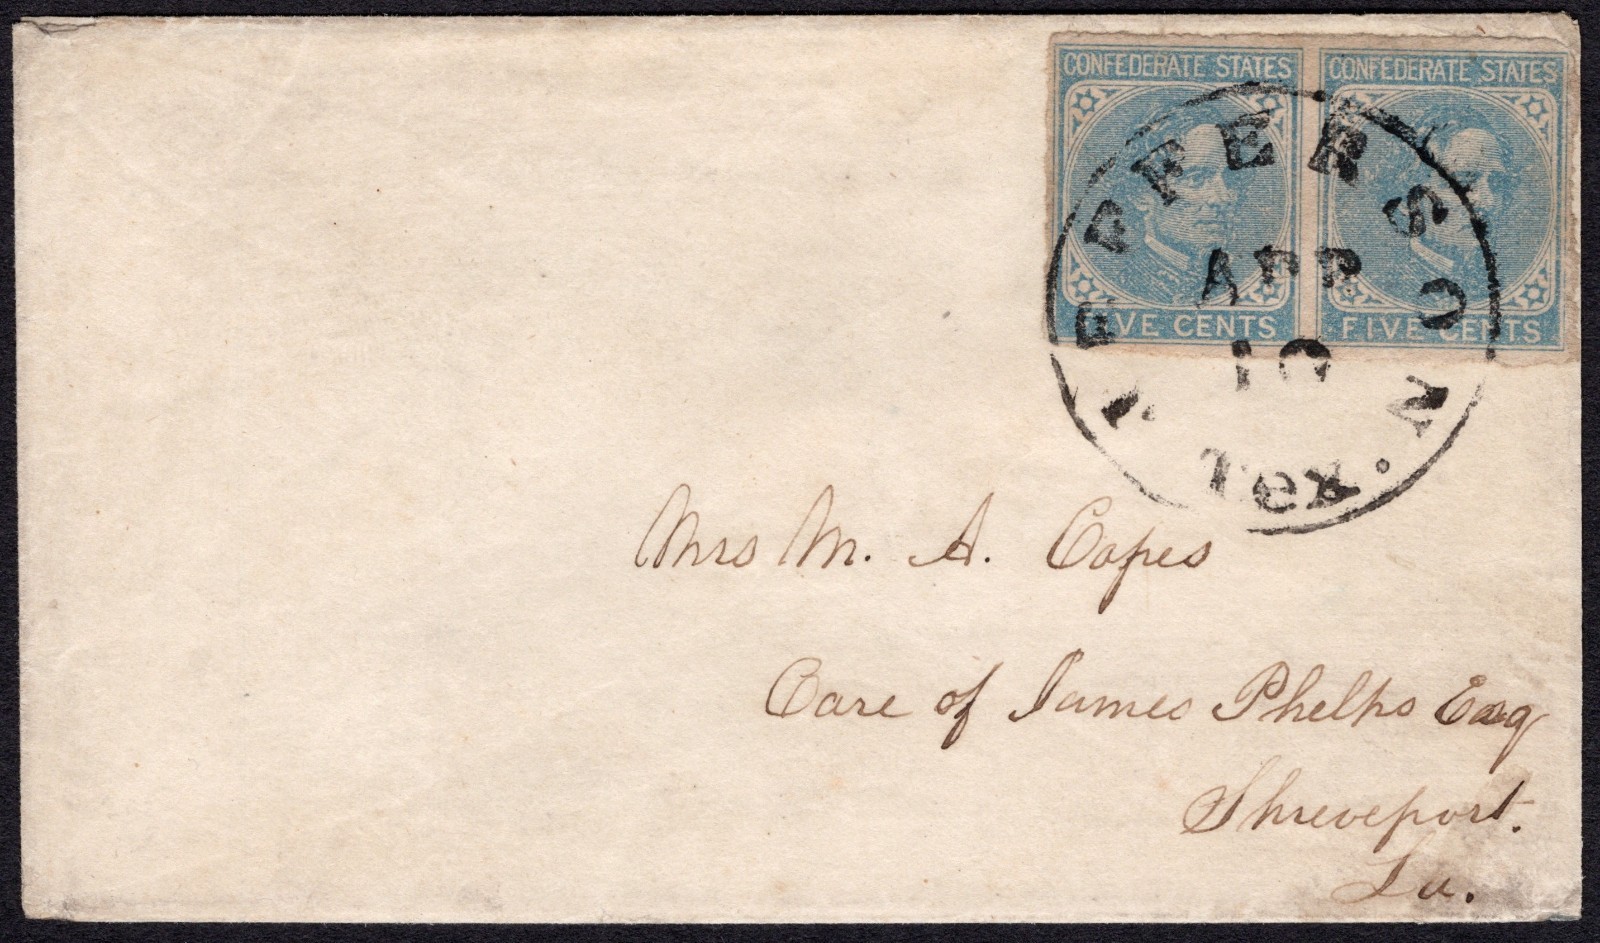 CONFEDERATE STATES CONFEDERATE STATES
JEFFERSON
APR
10
Tex.
FIVE CENTS FIVE CENTS
Mrs M. A. Copes
Care of James Phelps Esq
Shreveport.
La.